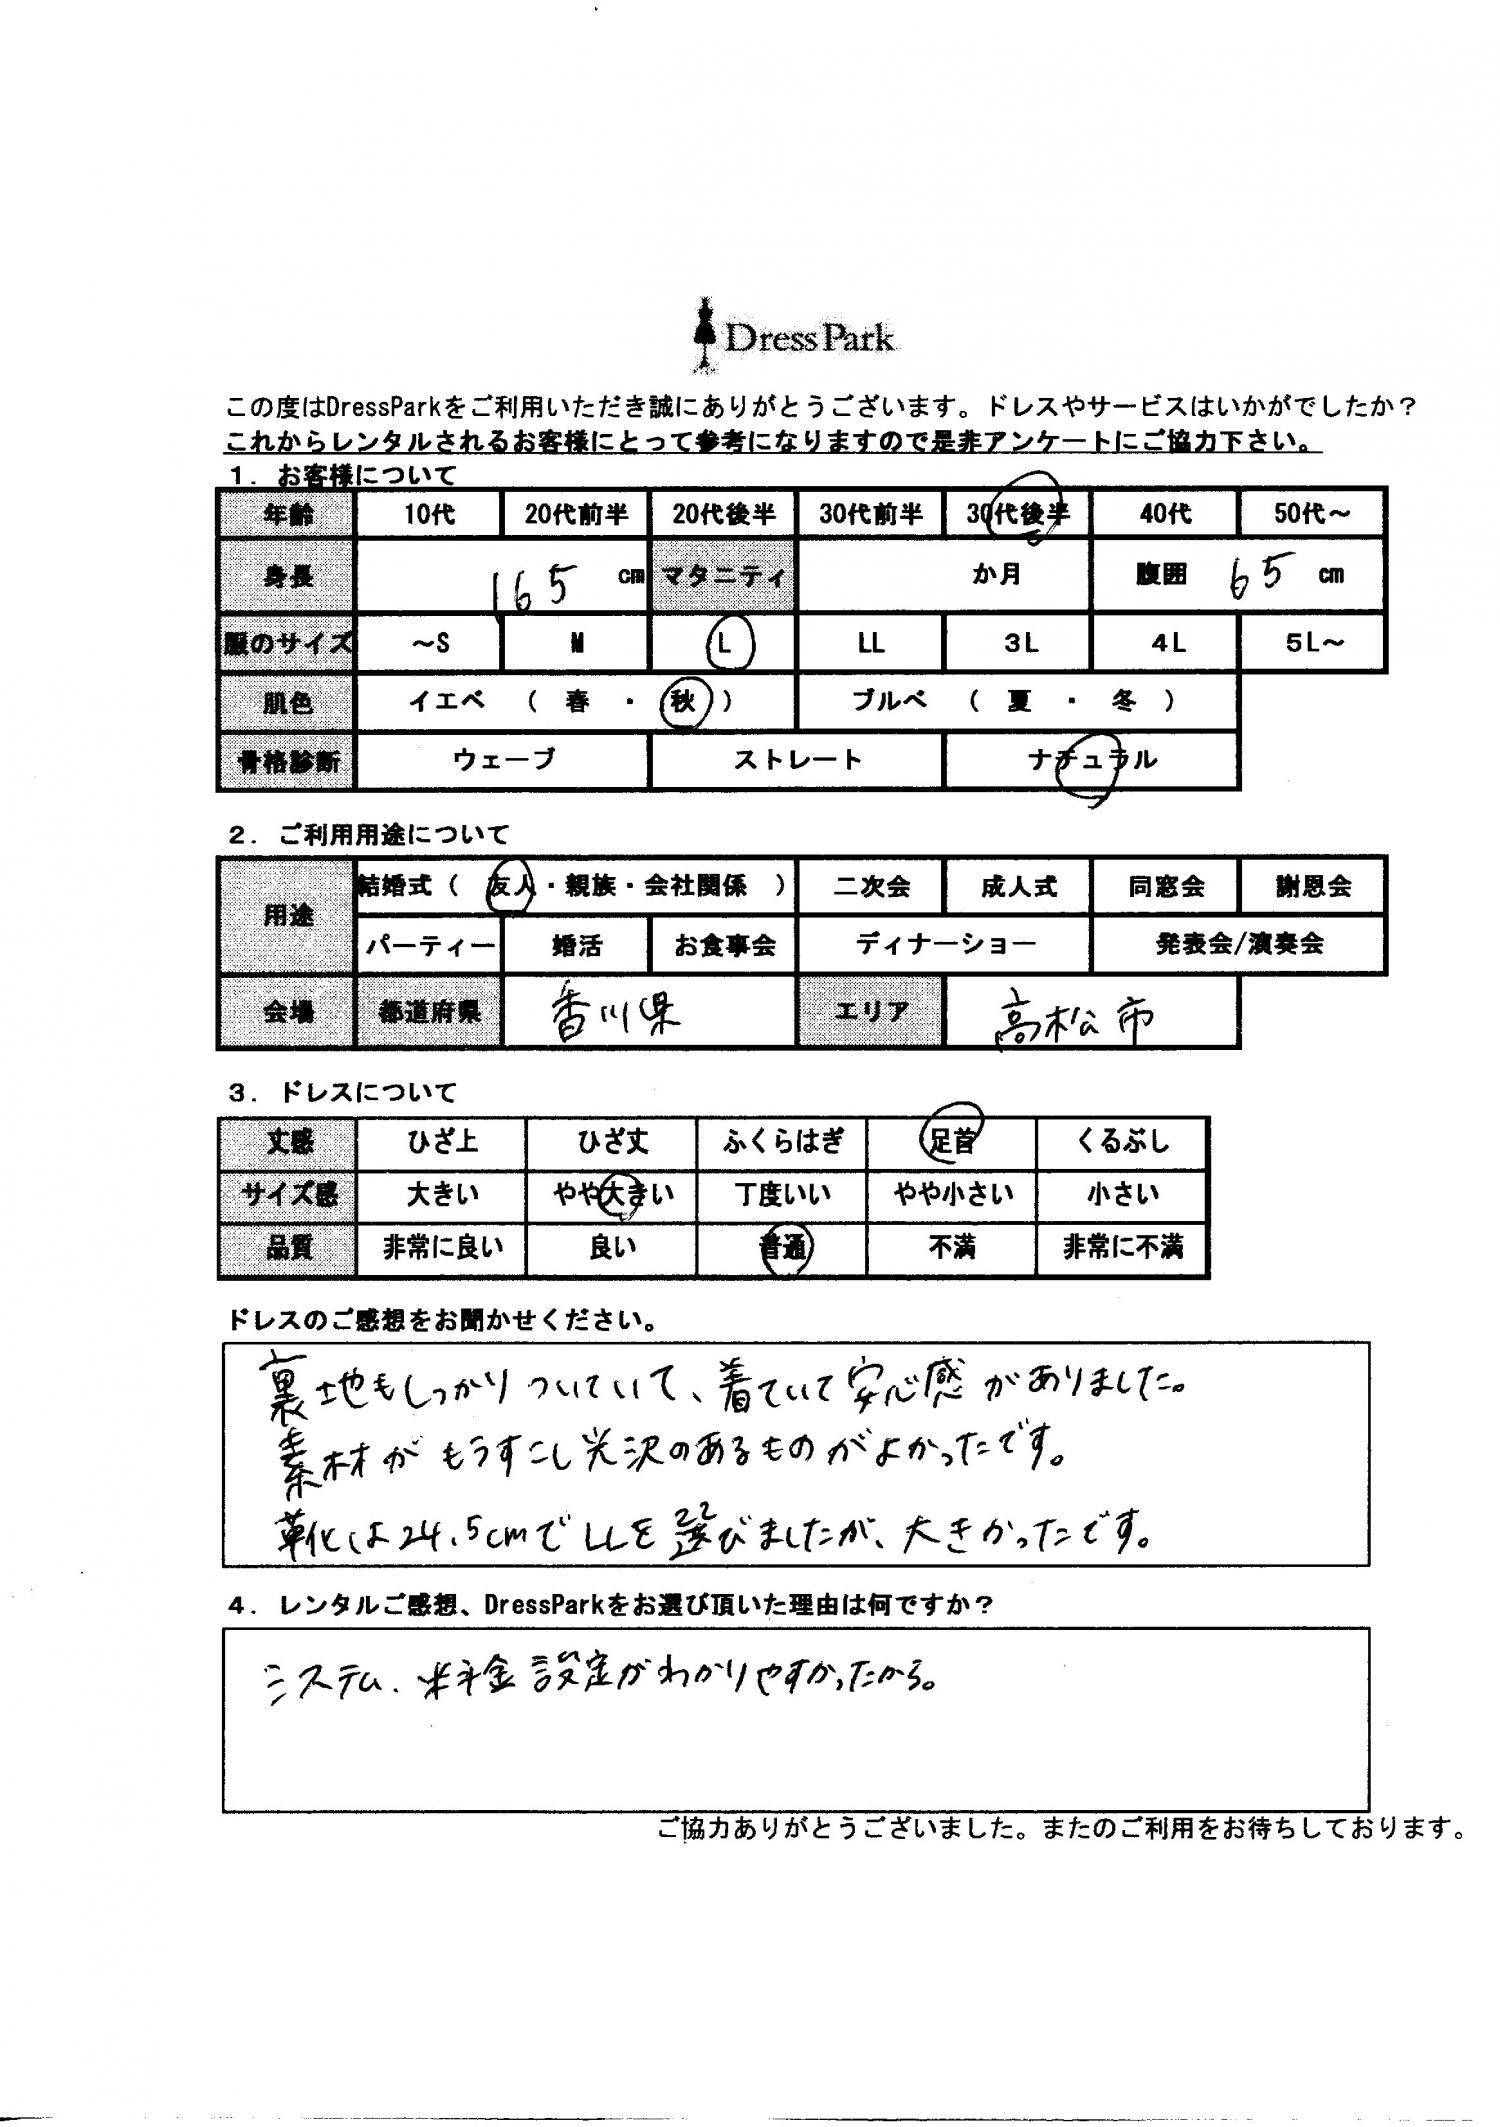 DressPark
この度はDressParkをご利用いただき誠にありがとうございます。ドレスやサービスはいかがでしたか？
これからレンタルされるお客様にとって参考になりますので是非アンケートにご協力下さい。
1. お客様について
年齢 10代 20代前半 20代後半 30代前半 30代後半 40代 50代～
身長 165 cm マタニティ か月 腹囲 65 cm
服のサイズ ～S M L LL 3L 4L 5L～
肌色 イエベ （ 春 ・ 秋 ） ブルベ （ 夏 ・ 冬 ）
骨格診断 ウェーブ ストレート ナチュラル
2. ご利用用途について
用途 結婚式（ 友人・親族・会社関係 ） 二次会 成人式 同窓会 謝恩会
パーティー 婚活 お食事会 ディナーショー 発表会/演奏会
会場 都道府県 香川県 エリア 高松市
3. ドレスについて
丈感 ひざ上 ひざ丈 ふくらはぎ 足首 くるぶし
サイズ感 大きい やや大きい 丁度いい やや小さい 小さい
品質 非常に良い 良い 普通 不満 非常に不満
ドレスのご感想をお聞かせください。
裏地もしっかりついていて、着ていて安心感がありました。
素材がもうすこし光沢のあるものがよかったです。
靴は24.5cmでLLを選びましたが、大きかったです。
4. レンタルご感想、DressParkをお選び頂いた理由は何ですか？
システム、料金設定がわかりやすかったから。
ご協力ありがとうございました。またのご利用をお待ちしております。